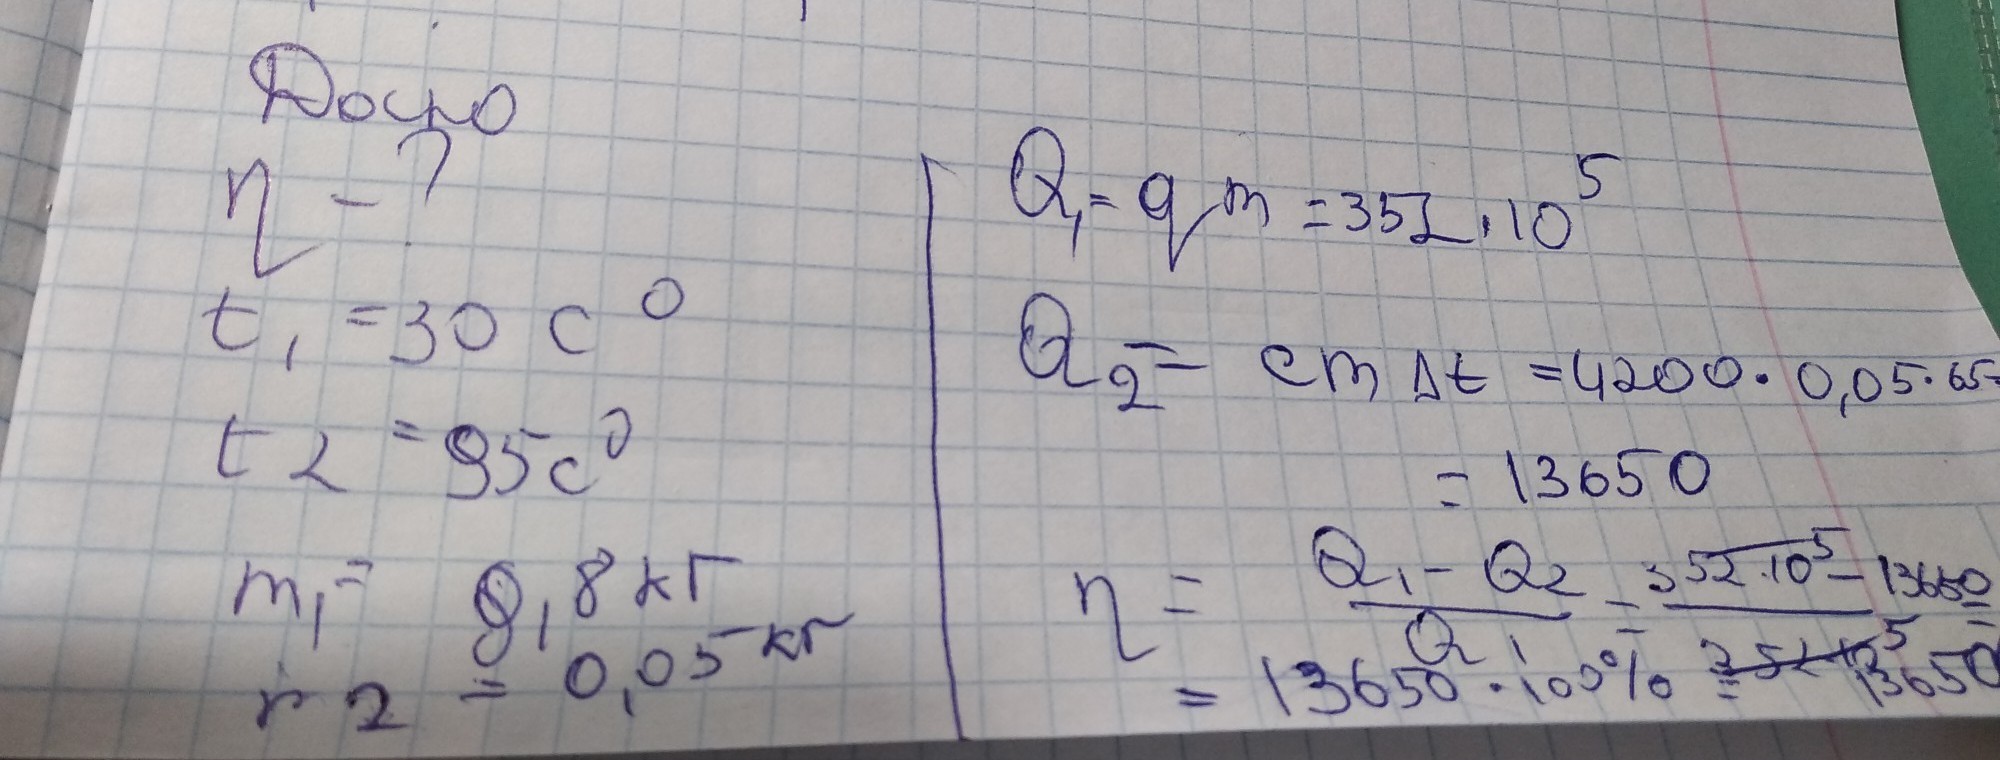 Дано
η - ?
t₁ = 30 c⁰
t2 = 95c⁰
m₁ = 0,8 кг
2 = 0,05 кг
Q₁ = qm = 352 · 10⁵
Q₂ = cmΔt = 4200 · 0,05 · 65 =
= 13650
η = (Q₁ - Q₂) / Q₁ = (352 · 10⁵ - 13650) / =
= 13650 · 100% = 13650